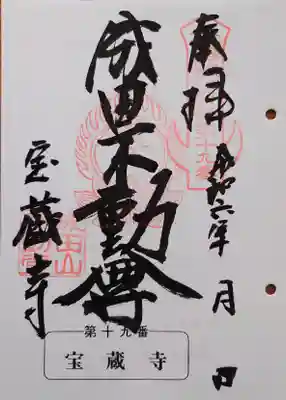 奉拝
令和六年 月 日
成田不動尊
宝蔵寺
第十九番
宝蔵寺